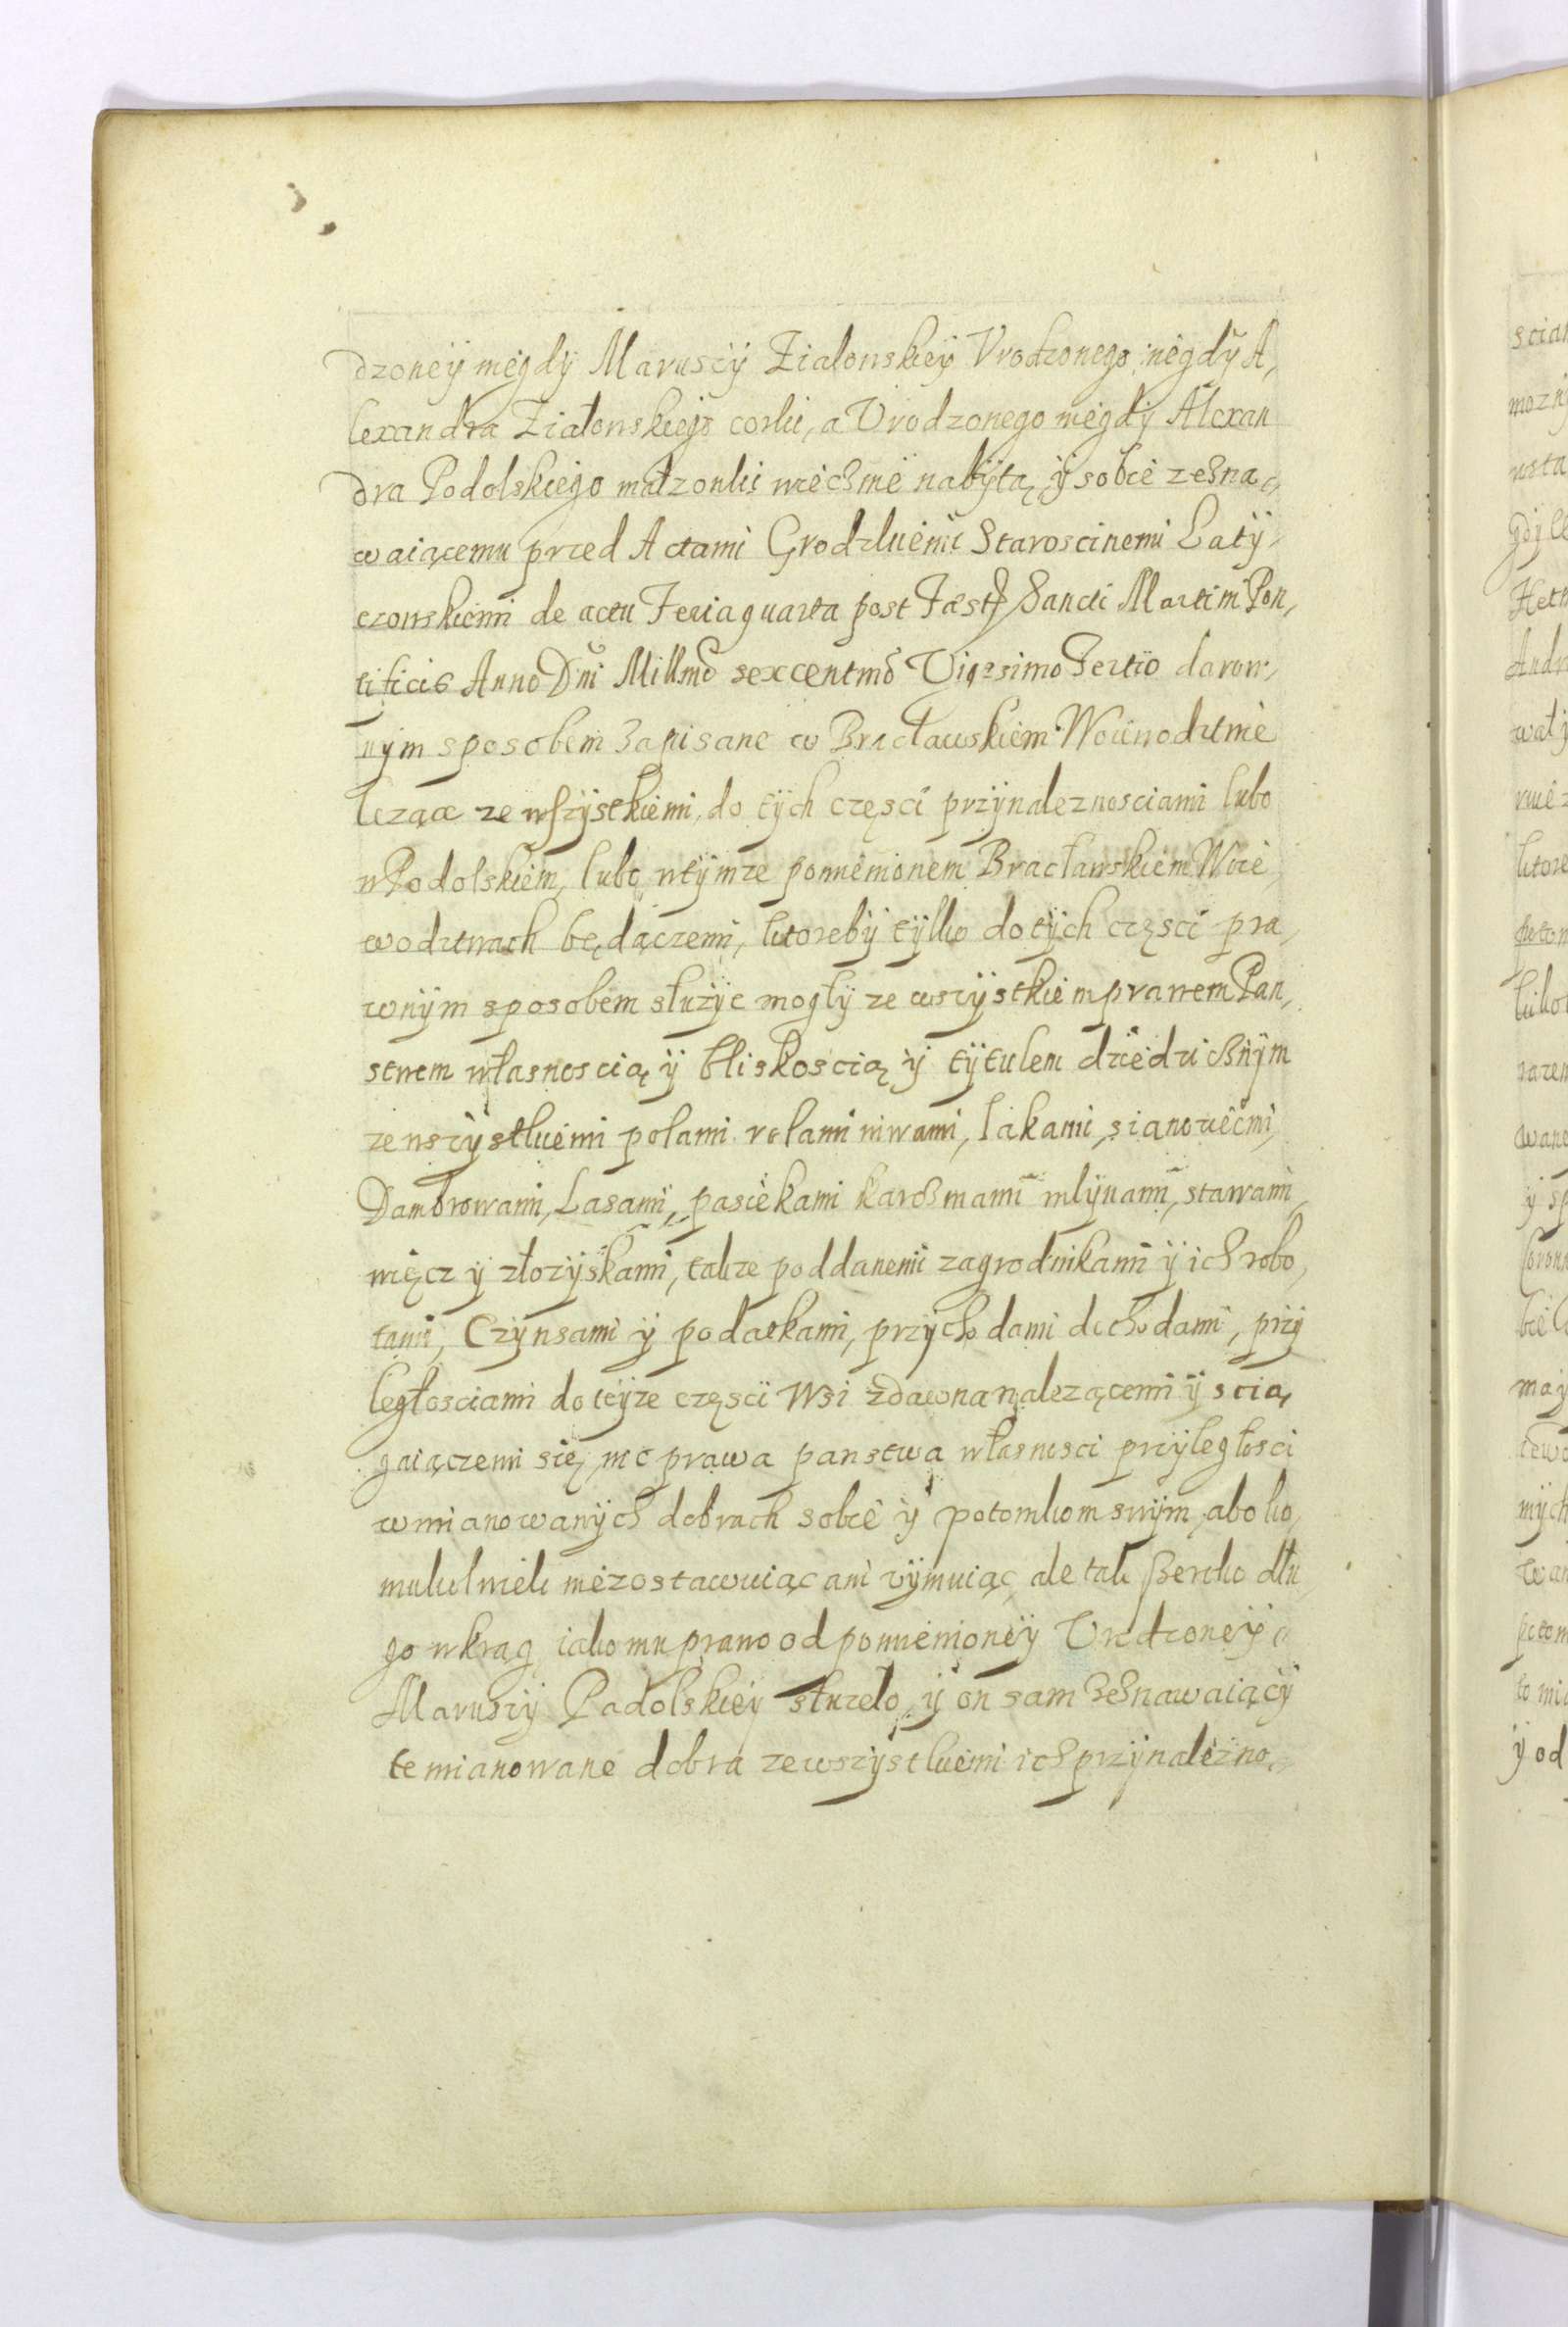 dzoneÿ niegdÿ Maruscÿ Ziałowskieÿ Vrodzonego niegdÿ A,
lexandra Ziałowskiego corki, a Vrodzonego niegdÿ Alexan
dra Podolskiego małzonki wiecznie nabÿtą ÿ sobie zezna,
waiącemu przed Actami Grodzkiemi Staroscinemi Latÿ,
czowskiemi de actu Feria quarta post Fæst Sancti Martini Pon,
tificis Anno Dni Millmo sexcentmo Vigesimo Tertio darow,
nÿm sposobem zapisane w Bracławskiem Woiewodztwie
lezące ze wszÿstkiemi do tÿch częsci przÿnaleznosciami lubo
w Podolskiem, lubo w tÿmze pomienionem Bracławskiem Woie,
wodztwach będączemi, ktorebÿ tÿlko do tÿch częsci pra,
wnÿm sposobem słuzÿc mogłÿ ze wszÿstkiem prawem Pan,
stwem własnoscią ÿ bliskoscią ÿ tÿtulem dziedzicznÿm
ze wszÿstkiemi polami rolami niwami, łakami, sianozęciami,
Dambrowami, Lasami, pasiekami karczmami młÿnami, stawami,
 ÿ złozÿskami, takze poddanemi zagrodnikami ÿ ich robo,
tami, Czÿnsami ÿ podatkami, przÿchodami dochodami, przÿ
ległosciami do teÿze częsci Wsi zdawna nalezącemi ÿ scią
gaiączemi się, nic prawa panstwa własnosci przÿległosci
w mianowanÿch dobrach sobie ÿ potomkom swÿm, abo ko,
mukolwiek niezostawuiąc ani vÿmuiąc, ale tak szeroko dłu
go wkrąg iako mu prawo od pomienioneÿ Vrodzoneÿ
Maruszÿ Podolskieÿ słuzeło, ÿ on sam zeznawaiącÿ
te mianowane dobra ze wszÿstkiemi ich przÿnalezno,